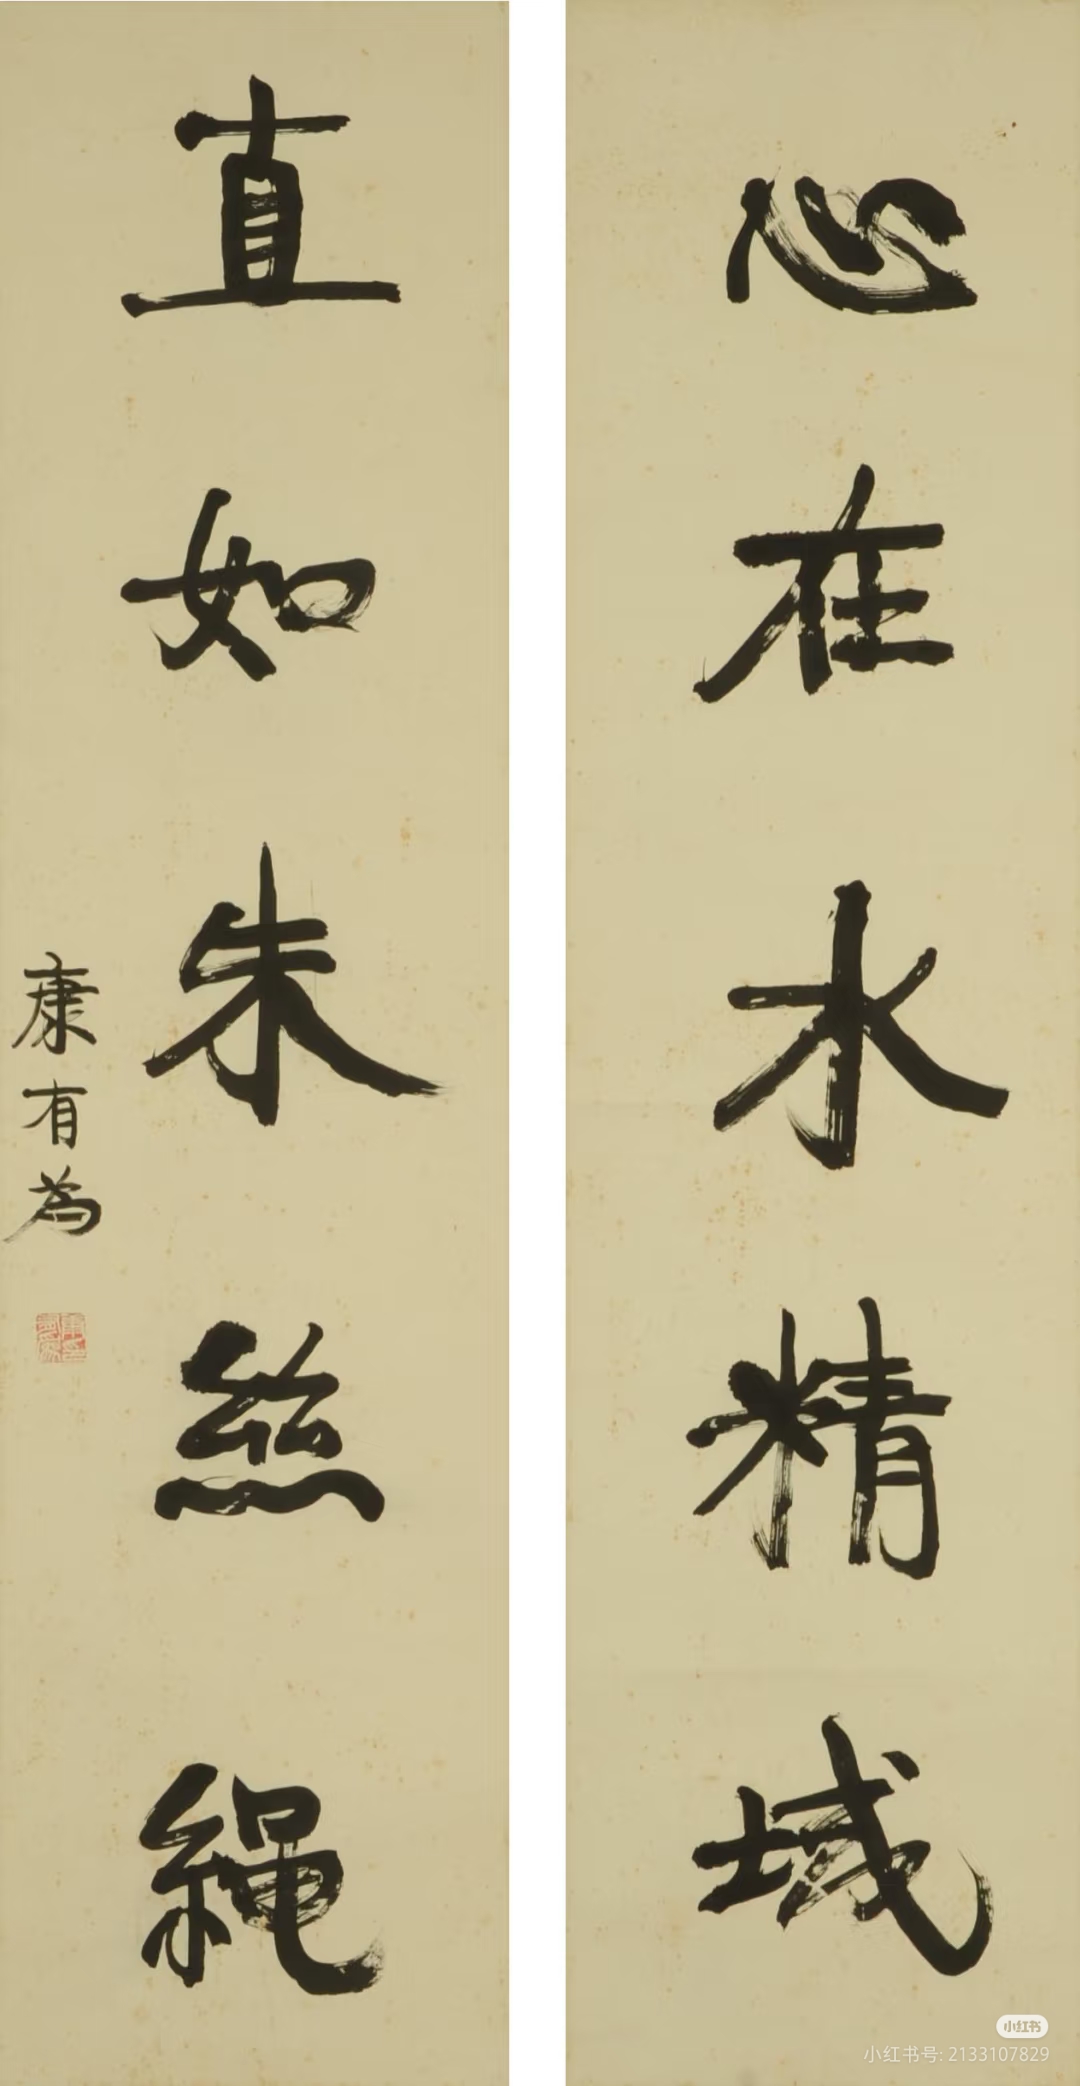 心在水精域
直如朱絲繩
康有為
小红书
小红书号: 2133107829